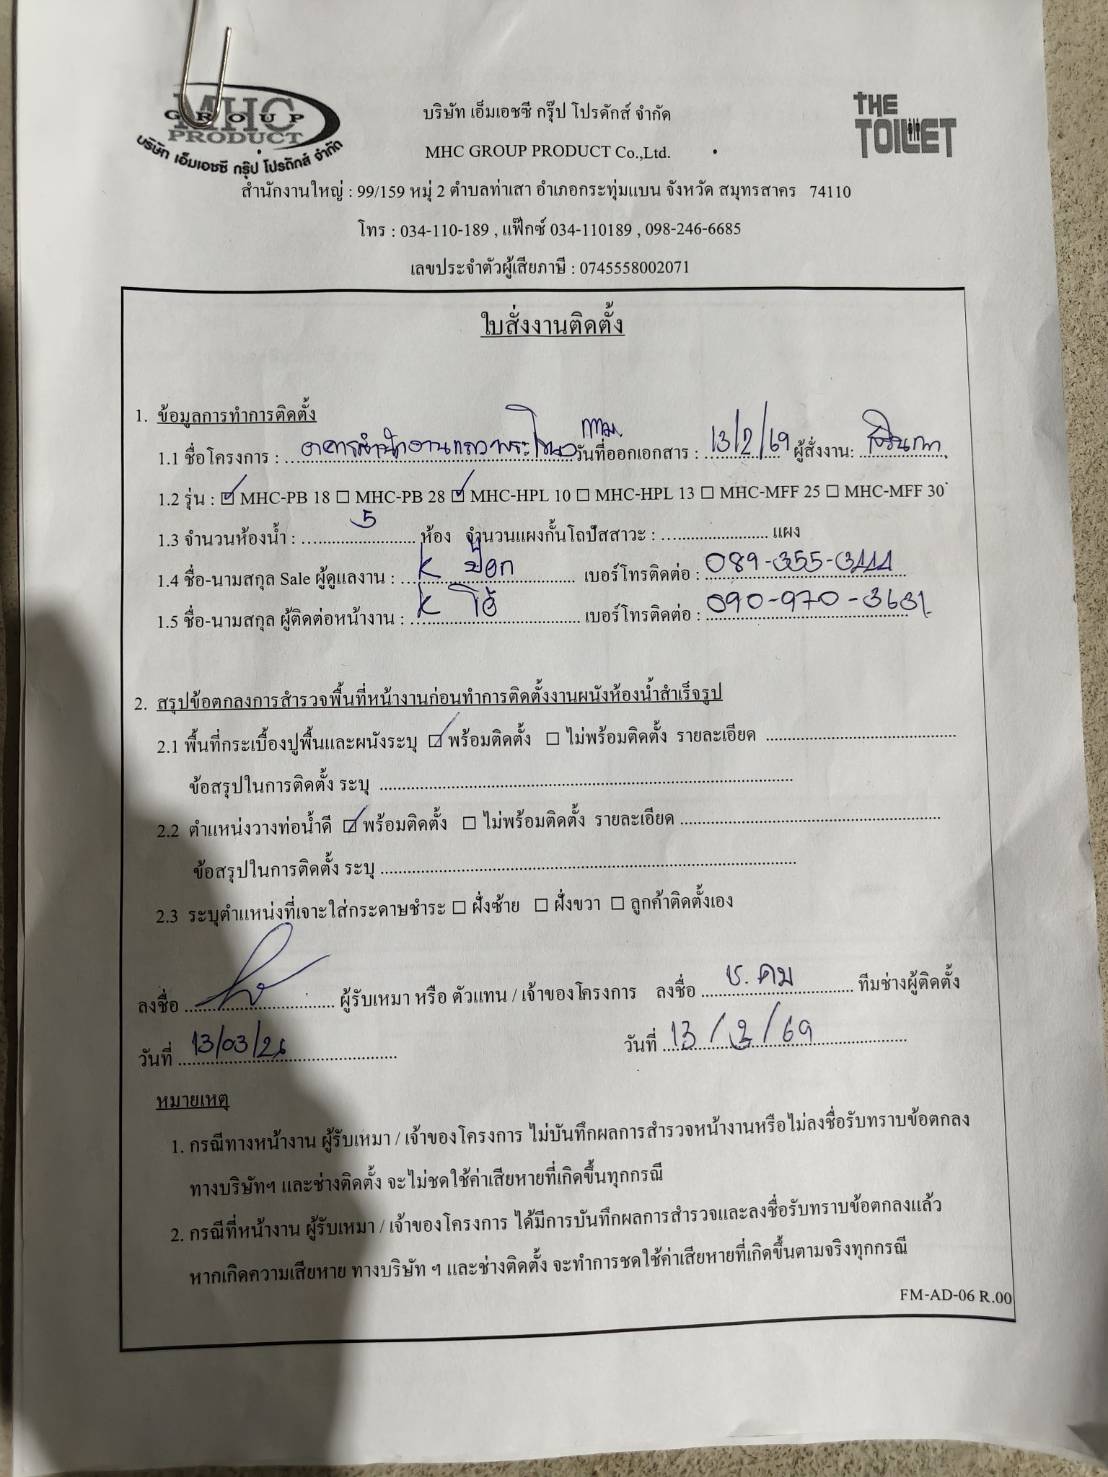 MHC
GROUP
PRODUCT
บริษัท เอ็มเอชซี กรุ๊ป โปรดักส์ จำกัด
THE
TOILET
บริษัท เอ็มเอชซี กรุ๊ป โปรดักส์ จำกัด
MHC GROUP PRODUCT Co.,Ltd.
สำนักงานใหญ่ : 99/159 หมู่ 2 ตำบลท่าเสา อำเภอกระทุ่มแบน จังหวัด สมุทรสาคร 74110
โทร : 034-110-189 , แฟ๊กซ์ 034-110189 , 098-246-6685
เลขประจำตัวผู้เสียภาษี : 0745558002071
ใบสั่งงานติดตั้ง
1. ข้อมูลการทำการติดตั้ง
1.1 ชื่อโครงการ : อาคารสำนักงานแถวพระโขนง กทม. วันที่ออกเอกสาร : 13/2/69 ผู้สั่งงาน:
1.2 รุ่น : ☑ MHC-PB 18 ☐ MHC-PB 28 ☑ MHC-HPL 10 ☐ MHC-HPL 13 ☐ MHC-MFF 25 ☐ MHC-MFF 30
1.3 จำนวนห้องน้ำ : 5 ห้อง จำนวนแผงกั้นโถปัสสาวะ : .................... แผง
1.4 ชื่อ-นามสกุล Sale ผู้ดูแลงาน : K ป๊อก เบอร์โทรติดต่อ : 089-355-3444
1.5 ชื่อ-นามสกุล ผู้ติดต่อหน้างาน : K โอ๋ เบอร์โทรติดต่อ : 090-970-3631
2. สรุปข้อตกลงการสำรวจพื้นที่หน้างานก่อนทำการติดตั้งงานผนังห้องน้ำสำเร็จรูป
2.1 พื้นที่กระเบื้องปูพื้นและผนังระบุ ☑ พร้อมติดตั้ง ☐ ไม่พร้อมติดตั้ง รายละเอียด ....................
ข้อสรุปในการติดตั้ง ระบุ ....................
2.2 ตำแหน่งวางท่อน้ำดี ☑ พร้อมติดตั้ง ☐ ไม่พร้อมติดตั้ง รายละเอียด ....................
ข้อสรุปในการติดตั้ง ระบุ ....................
2.3 ระบุตำแหน่งที่เจาะใส่กระดาษชำระ ☐ ฝั่งซ้าย ☐ ฝั่งขวา ☐ ลูกค้าติดตั้งเอง
ลงชื่อ .................... ผู้รับเหมา หรือ ตัวแทน / เจ้าของโครงการ ลงชื่อ ช. คม ทีมช่างผู้ติดตั้ง
วันที่ 13/03/26 วันที่ 13/3/69
หมายเหตุ
1. กรณีทางหน้างาน ผู้รับเหมา / เจ้าของโครงการ ไม่บันทึกผลการสำรวจหน้างานหรือไม่ลงชื่อรับทราบข้อตกลง
ทางบริษัทฯ และช่างติดตั้ง จะไม่ชดใช้ค่าเสียหายที่เกิดขึ้นทุกกรณี
2. กรณีที่หน้างาน ผู้รับเหมา / เจ้าของโครงการ ได้มีการบันทึกผลการสำรวจและลงชื่อรับทราบข้อตกลงแล้ว
หากเกิดความเสียหาย ทางบริษัท ฯ และช่างติดตั้ง จะทำการชดใช้ค่าเสียหายที่เกิดขึ้นตามจริงทุกกรณี
FM-AD-06 R.00